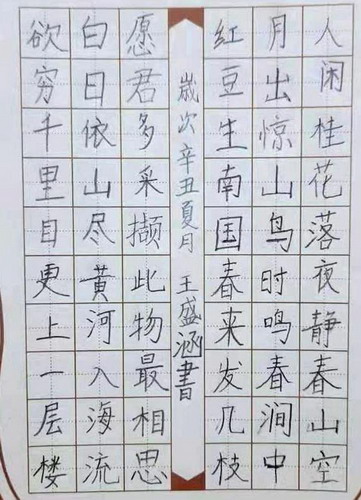 人闲桂花落夜静春山空
月出惊山鸟时鸣春涧中
红豆生南国春来发几枝
歲次辛丑夏月 王盛涵書
愿君多采撷此物最相思
白日依山尽黄河入海流
欲穷千里目更上一层楼